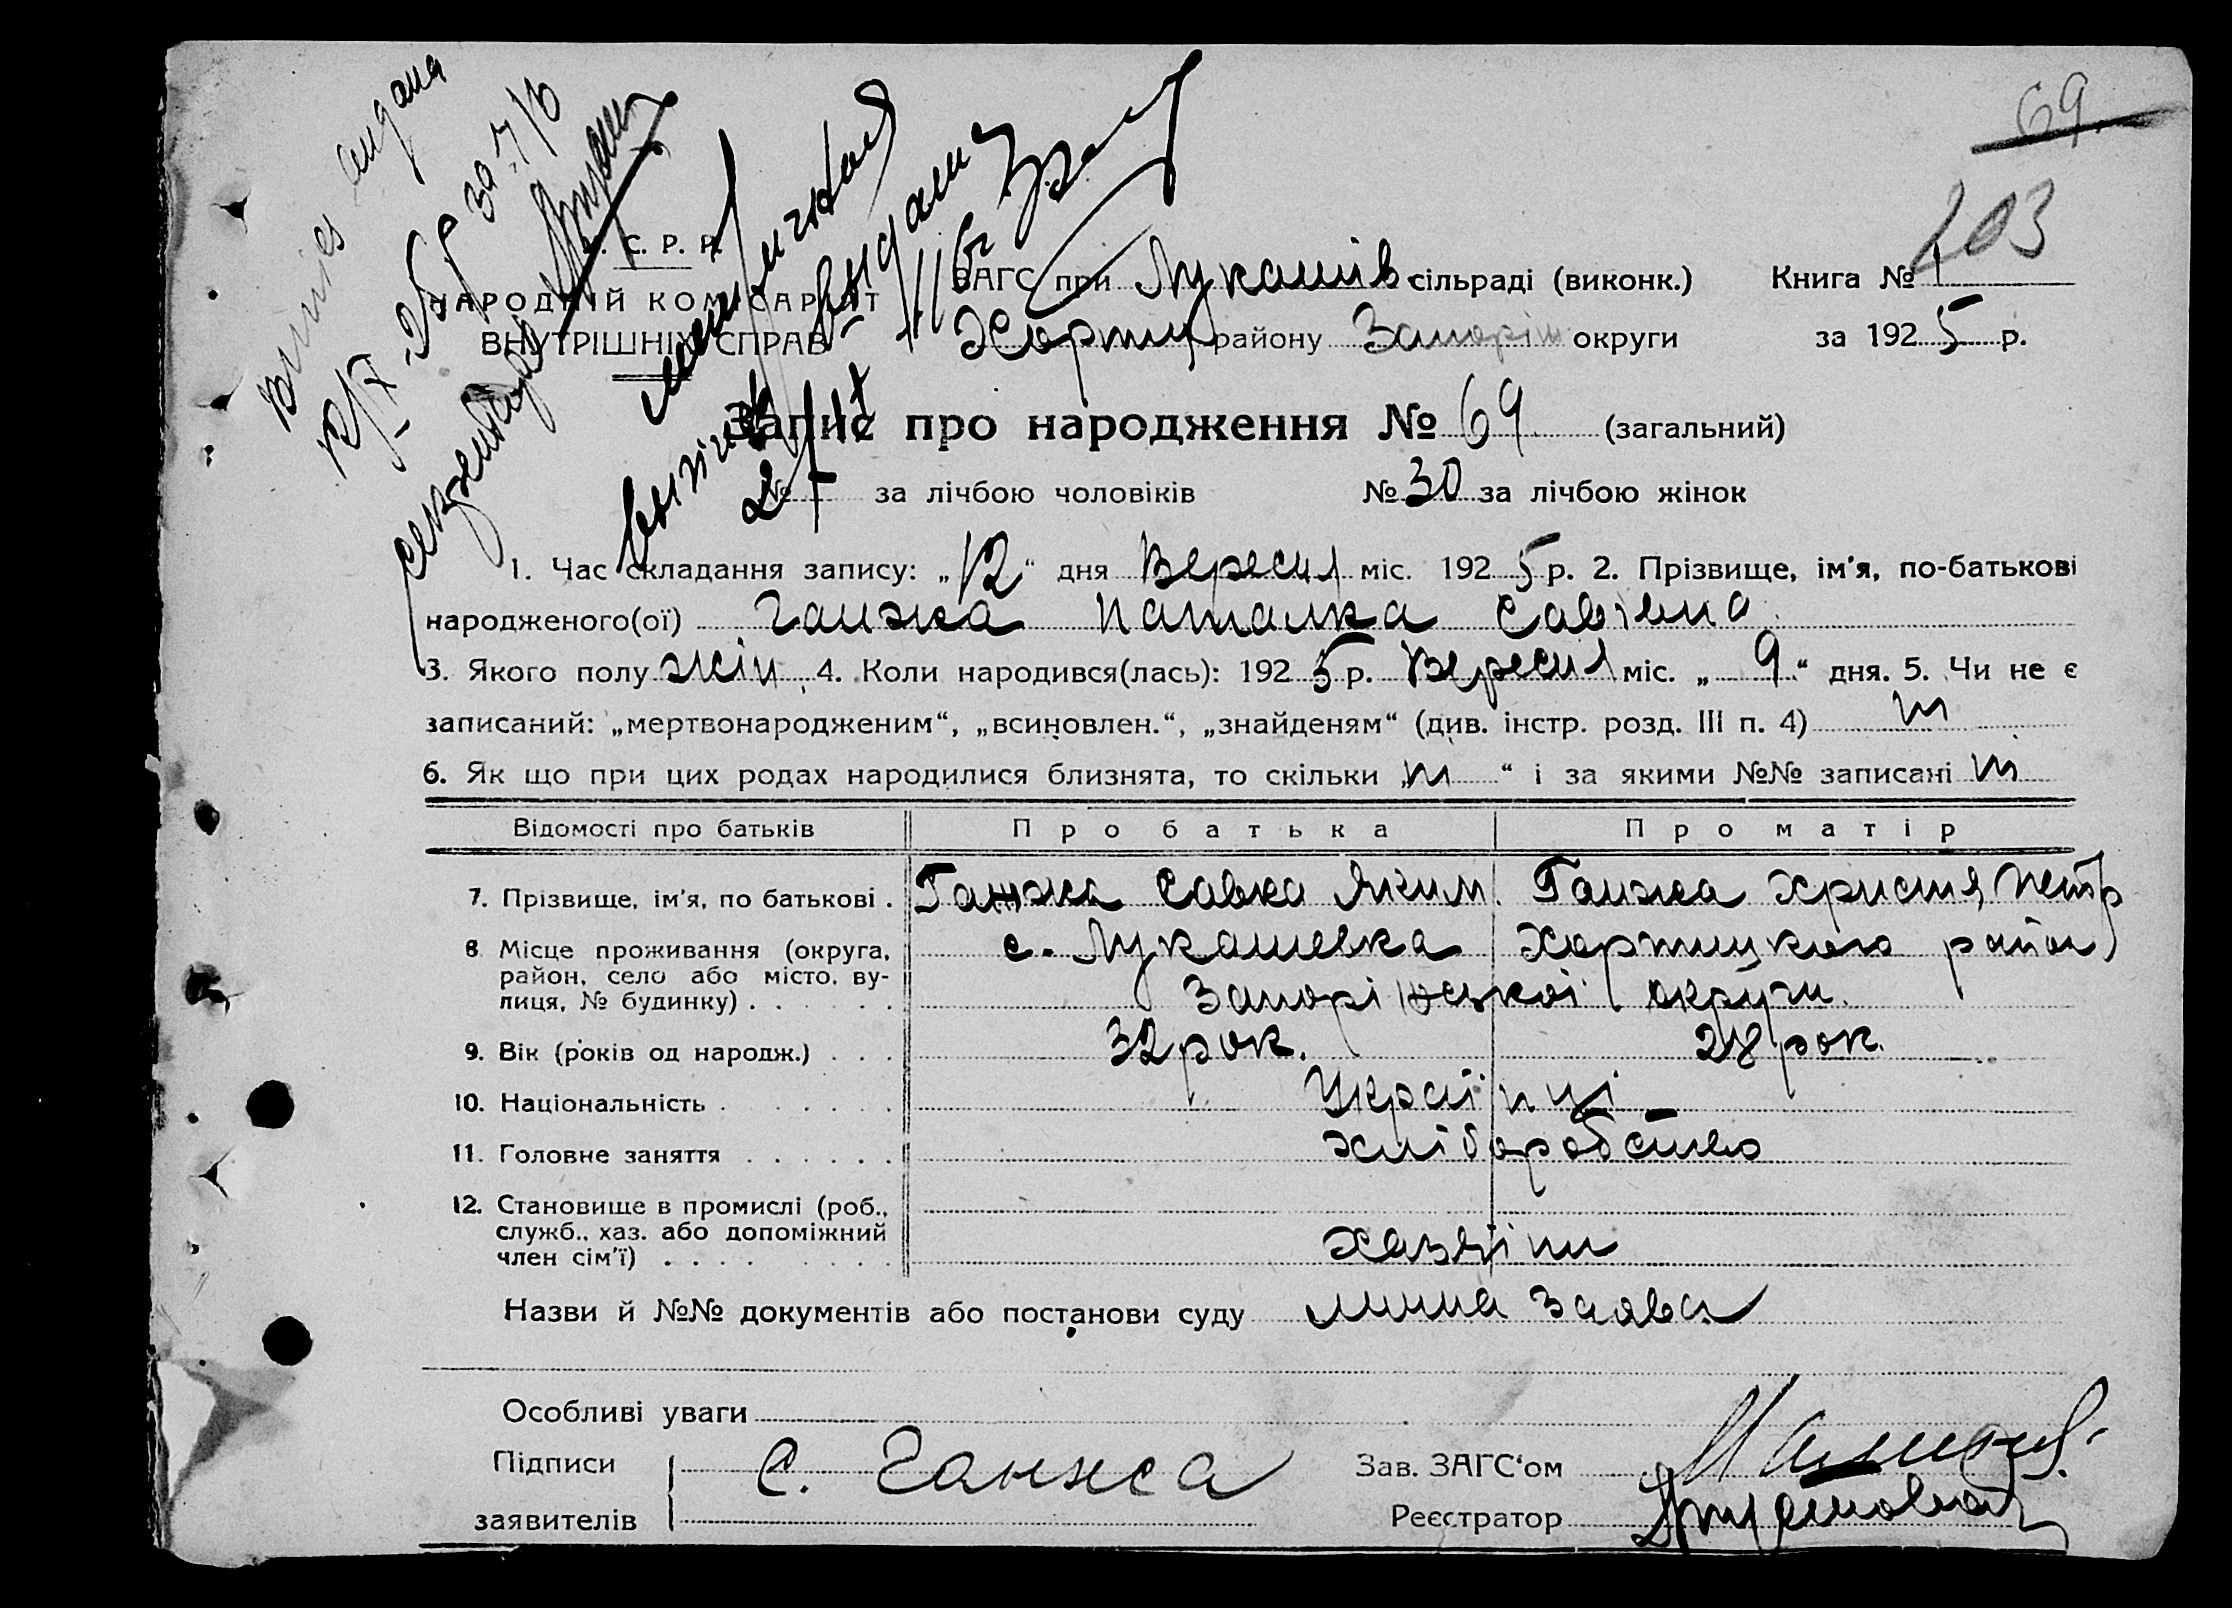 69.
203
С. Р. Р.
НАРОДНІЙ КОМІСАРІАТ
ВНУТРІШНІХ СПРАВ
ЗАГС при Лукашів. сільраді (виконк.) Книга № 1
Хортиц району Запоріж округи за 1925 р.
Запис про народження № 69 (загальний)
№ за лічбою чоловіків № 30 за лічбою жінок
1. Час складання запису: „12“ дня Вересня міс. 1925 р. 2. Прізвище, ім'я, по-батькові
народженого(ої) Ганжа Наталка Савівна
3. Якого полу жін. 4. Коли народився(лась): 1925 р. Вересня міс. „9“ дня. 5. Чи не є
записаний: „мертвонародженим“, „всиновлен.“, „знайденям“ (див. інстр. розд. III п. 4) ні
6. Як що при цих родах народилися близнята, то скільки „ні“ і за якими №№ записані ні
Відомості про батьків Про батька Про матір
7. Прізвище, ім'я, по батькові . Ганжа Савка Яким. Ганжа Христя Петр
8 Місце проживання (округа, район, село або місто, вулиця, № будинку) с. Лукашевка Хортицкого район
Запоріжської округи.
9. Вік (років од народж.) 32 рок. 28 рок.
10. Національність Українці
11. Головне заняття хліборобство
12. Становище в промислі (роб., служб., хаз. або допоміжний член сім'ї) хазяїни
Назви й №№ документів або постанови суду лична заява
Особливі уваги
Підписи
заявителів
С. Ганжа
Зав. ЗАГС'ом
Реєстратор